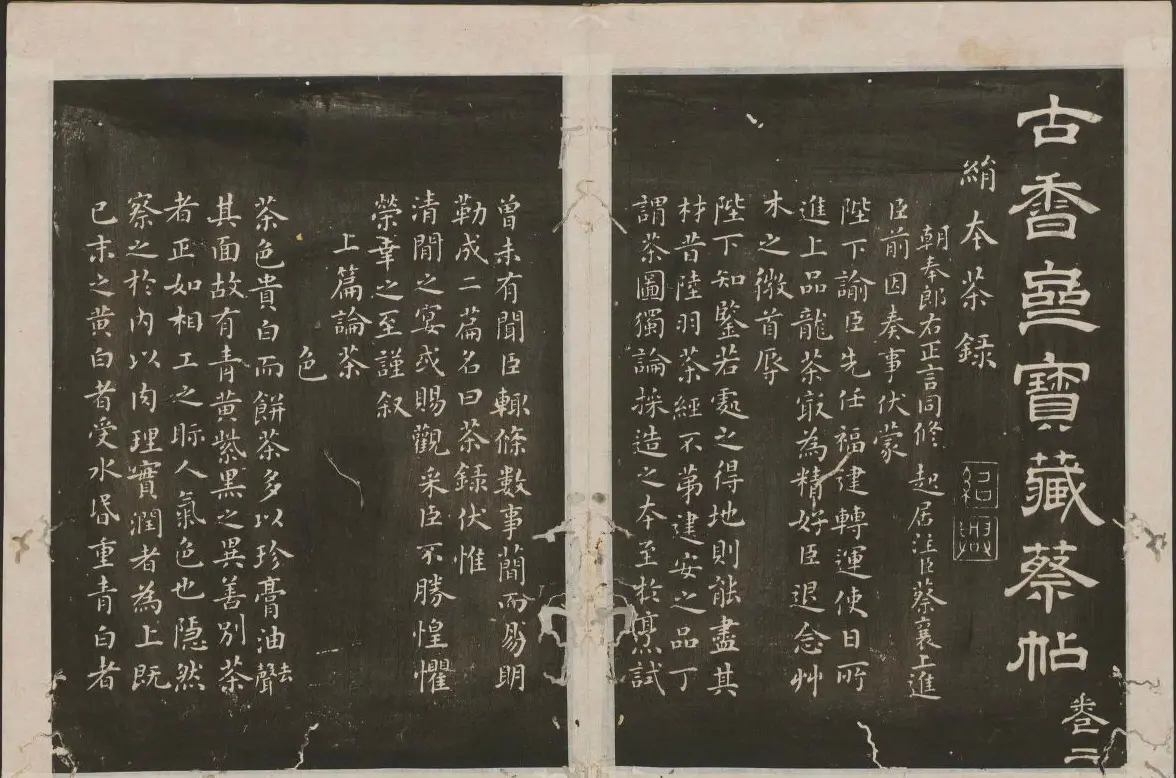 古香齋寶藏蔡帖 卷二
絹本茶録
紹興
朝奉郎右正言同修 起居注臣蔡襄上進
臣前因奏事伏蒙
陛下諭臣先任福建轉運使日所
進上品龍茶冣為精好臣退念艸
木之微首辱
陛下知鑒若處之得地則能盡其
材昔陸羽茶經不第建安之品丁
謂茶圖獨論採造之本至於烹試
曾未有聞臣輒條數事簡而易明
勒成二篇名曰茶録伏惟
清閒之宴或賜觀采臣不勝惶懼
榮幸之至謹叙
上篇論茶
色
茶色貴白而餅茶多以珍膏油去聲
其面故有青黃紫黑之異善別茶
者正如相工之眎人氣色也隱然
察之於内以肉理實潤者為上既
已末之黃白者受水昬重青白者